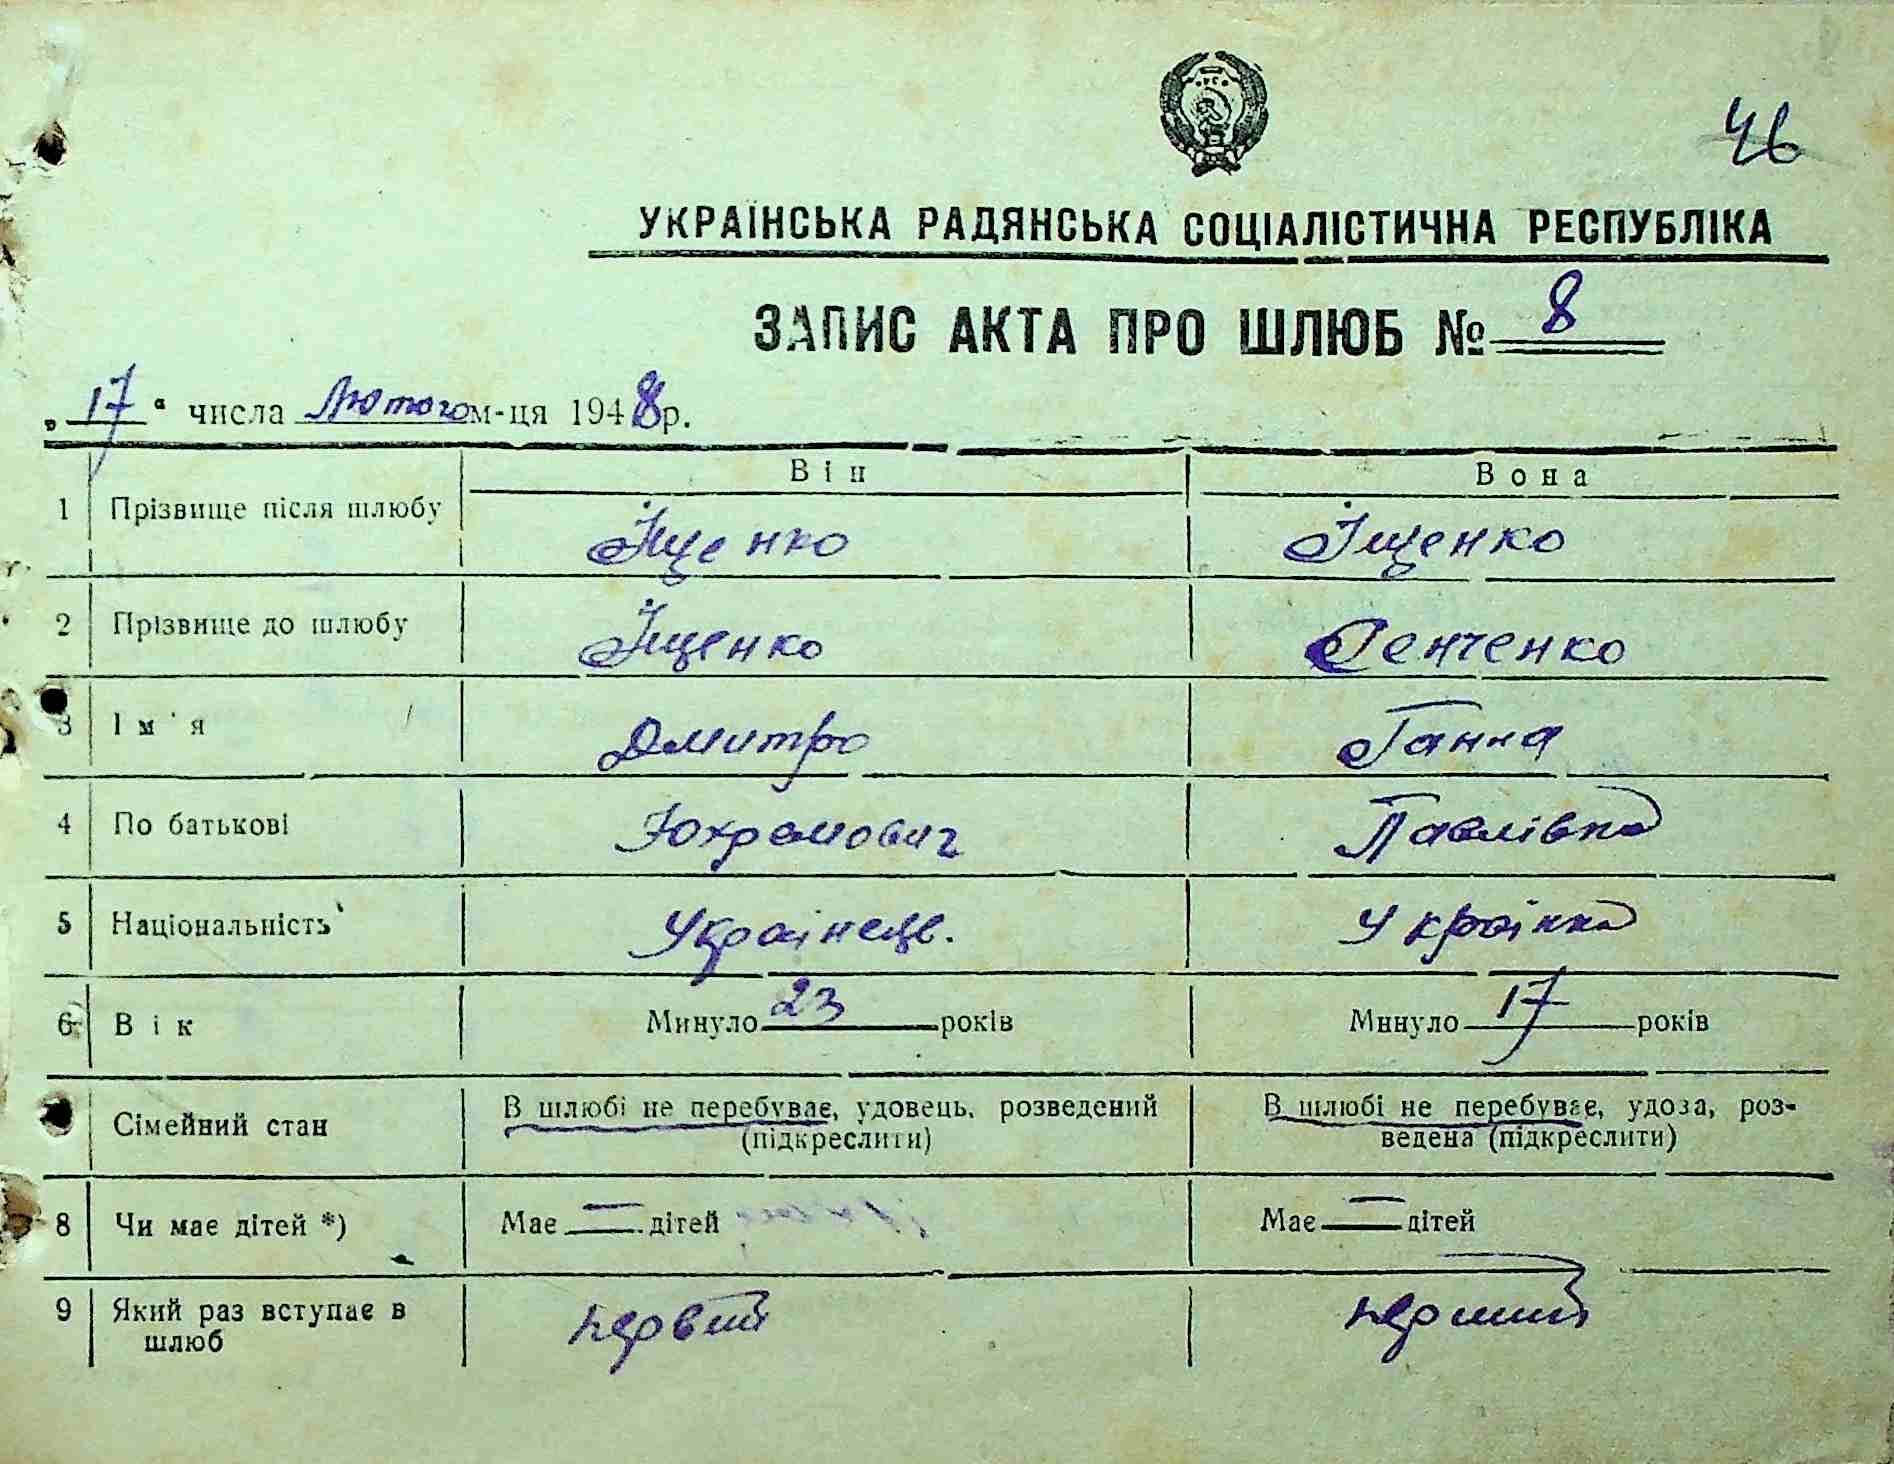 46
УКРАЇНСЬКА РАДЯНСЬКА СОЦІАЛІСТИЧНА РЕСПУБЛІКА
ЗАПИС АКТА ПРО ШЛЮБ № 8
„17“ числа Лютого м-ця 1948 р.
Він Вона
1 Прізвище після шлюбу Іщенко Іщенко
2 Прізвище до шлюбу Іщенко Сенченко
3 Ім'я Дмитро Ганна
4 По батькові Юхремович Павлівна
5 Національність Українець. Українка
6 Вік Минуло 23 років Минуло 17 років
Сімейний стан В шлюбі не перебуває, удовець, розведений В шлюбі не перебуває, удова, роз-
(підкреслити) ведена (підкреслити)
8 Чи має дітей *) Має — дітей Має — дітей
9 Який раз вступає в первий перший
шлюб